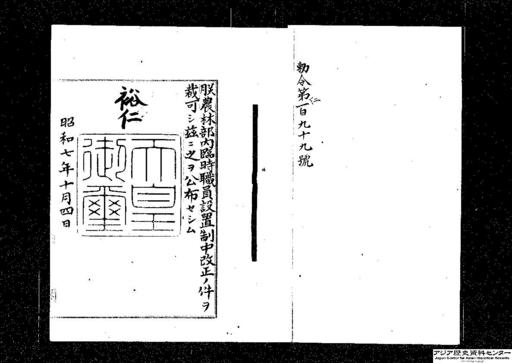 勅令第二百九十九號
朕農林部内臨時職員設置制中改正ノ件ヲ
裁可シ茲ニ之ヲ公布セシム
裕仁
天皇
御璽
昭和七年十月四日
アジア歴史資料センター
Japan Center for Asian Historical Records